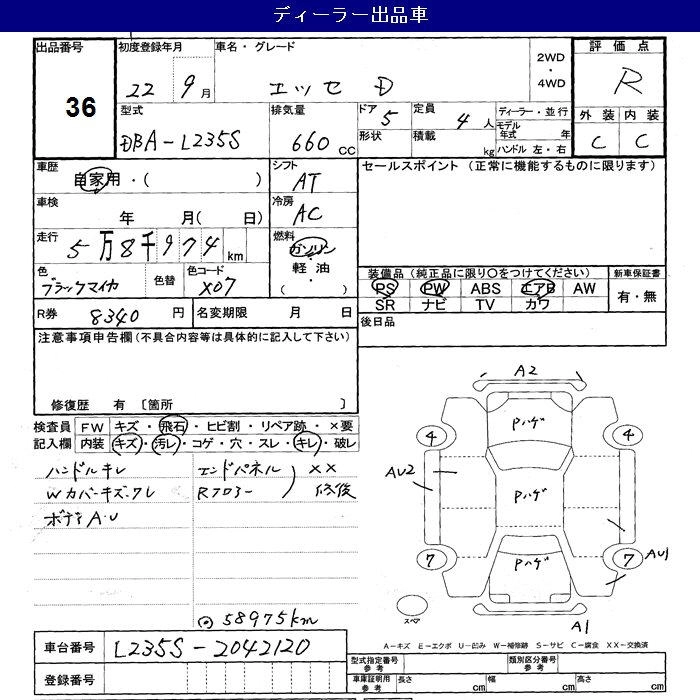 ディーラー出品車
出品番号 初度登録年月 車名・グレード 2WD・4WD 評価点
36 22 9月 エッセ D R
型式 排気量 ドア 5 定員 4人 ディーラー・並行 外装 内装
DBA-L235S 660cc 形状 積載 kg モデル年式 年 C C
ハンドル 左・右
車歴 シフト セールスポイント (正常に機能するものに限ります)
自家用・( ) AT
車検 冷房
年 月( 日) AC
走行 燃料
5万8千974km ガソリン・軽油・( )
色 色替 色コード 装備品(純正品に限り○をつけてください) 新車保証書
ブラックマイカ X07 PS PW ABS エアB AW 有・無
SR ナビ TV カワ
R券 8340円 名変期限 月 日 後日品
注意事項申告欄(不具合内容等は具体的に記入して下さい)
修復歴 有 [箇所 ]
検査員 FW キズ・飛石・ヒビ割・リペア跡・×要
記入欄 内装 キズ・汚レ・コゲ・穴・スレ・キレ・破レ
ハンドルキレ エンドパネル XX
Wカバーキズ・ワレ Rフロアー 修後
ボデーA.U
A2
Pハゲ
4 4
AU2
Pハゲ
7 Pハゲ 7 AU1
スペア A1
58975km
A-キズ E-エクボ U-凹み W-補修跡 S-サビ C-腐食 XX-交換済
車台番号 L235S-2042120
型式指定番号 参考 類別区分番号 参考
登録番号
車庫証明用 参考 長さ cm 幅 cm 高さ cm